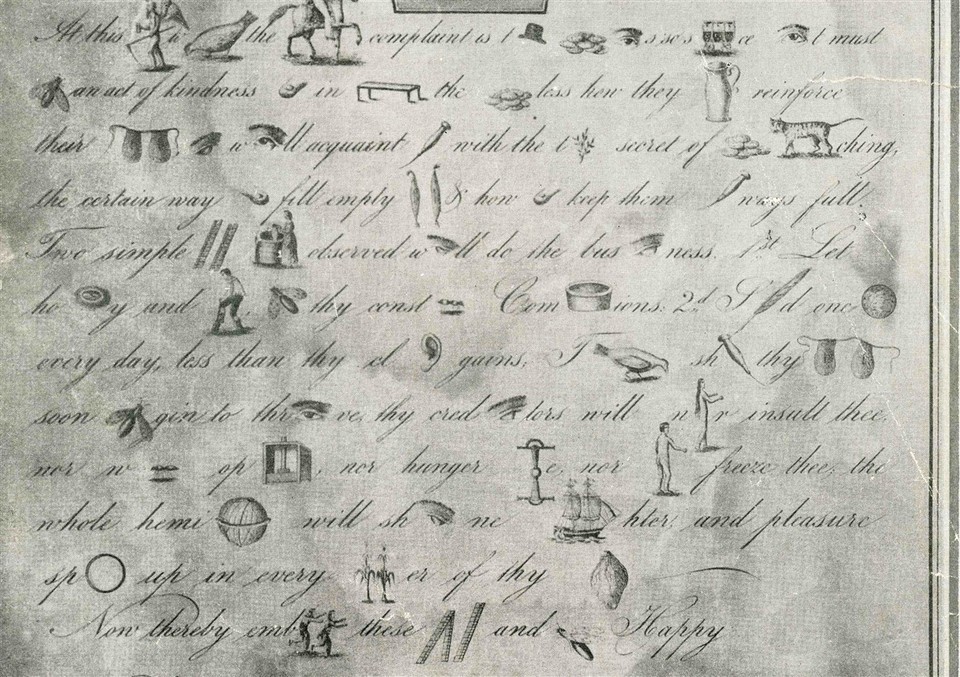 At this w the complaint is t s so s ce t must
an act of kindness in the less how they reinforce
their , w ll acquaint with the t secret of ching,
the certain way fill empty & how keep them ways full.
Two simple observed w ll do the bus ness. 1st Let
ho y and thy const Com ions. 2d S d one
every day, less than thy cl gains, T sh thy
soon gin to thr ve, thy cred tors will n r insult thee,
nor w op , nor hunger e, nor freeze thee, the
whole hemi will sh ne hter, and pleasure
sp up in every er of thy
Now thereby emb these and Happy